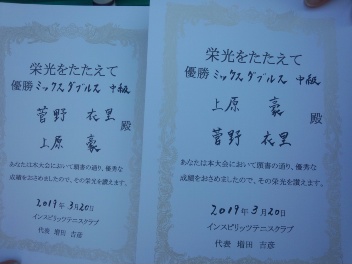 栄光をたたえて
優勝 ミックスダブルス 中級
菅野 衣里
上原 豪
殿
あなたは本大会において頭書の通り、優秀な
成績をおさめましたので、その栄光を讃えます。
2019年3月20日
インスピリッツテニスクラブ
代表 増田 吉彦
栄光をたたえて
優勝 ミックスダブルス 中級
上原 豪
菅野 衣里
殿
あなたは本大会において頭書の通り、優秀な
成績をおさめましたので、その栄光を讃えます。
2019年3月20日
インスピリッツテニスクラブ
代表 増田 吉彦